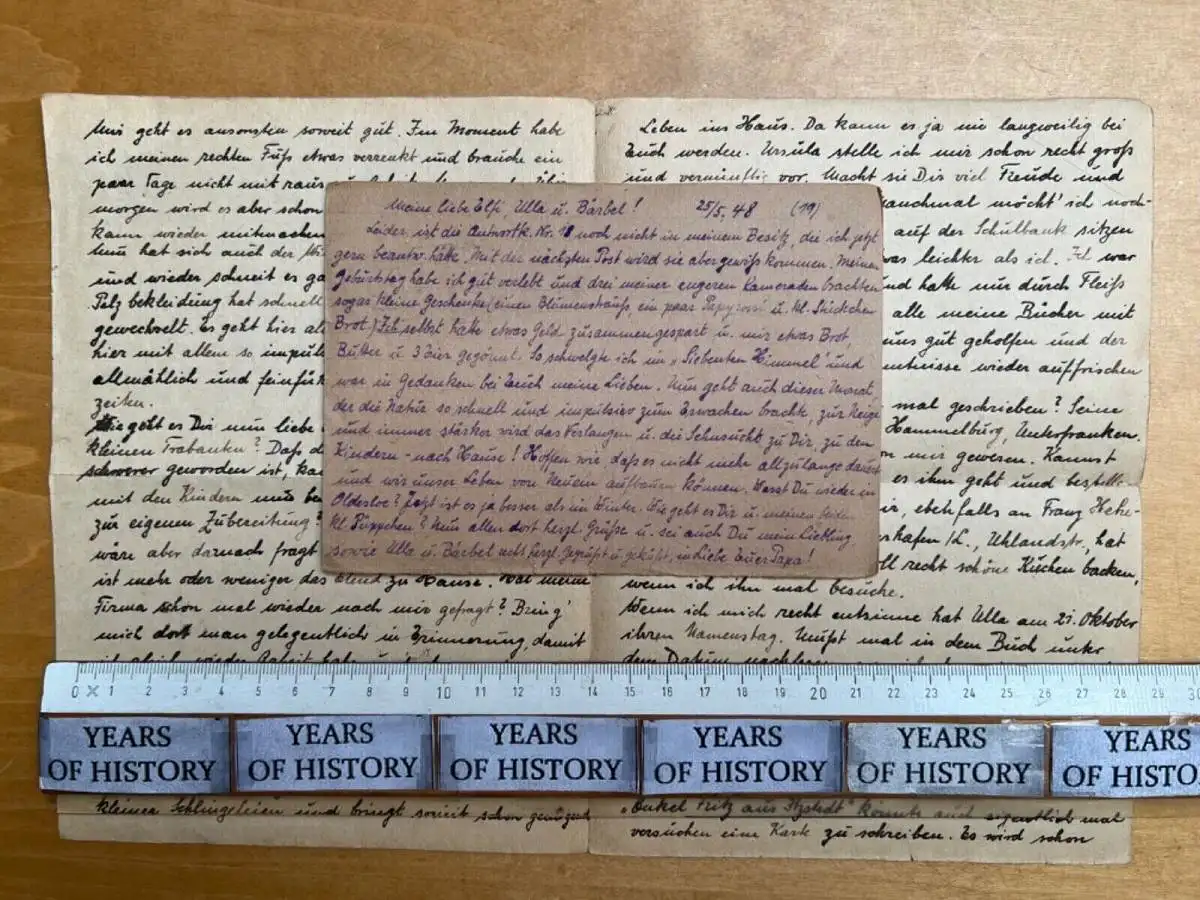 Mir geht es ansonsten soweit gut. Im Moment habe
ich meinen rechten Fuß etwas verrenkt und brauche ein
paar Tage nicht mit raus
morgen wird es aber schon
kann wieder mitmachen
Nun hat sich auch der
und wieder schneit es
Pelzbekleidung hat schnell
gewechselt. Es geht hier
hier mit allem so
allmählich und
zeiten.
Wie geht es Dir nun liebe
kleinen Trabanten? Daß
schwerer geworden ist,
mit den Kindern und
zur eigenen Zubereitung?
wäre aber darnach fragt
ist mehr oder weniger das Elend zu Hause. Hat meine
Firma schon mal wieder nach mir gefragt? Bring'
mich dort man gelegentlich in Erinnerung, damit
kleinen und bringt somit schon genügend
Meine liebe Elfi, Ulla u. Bärbel! 25/5. 48 (19)
Leider ist die Antwortk. Nr. 18 noch nicht in meinem Besitz, die ich jetzt
gern beantw. hätte. Mit der nächsten Post wird sie aber gewiß kommen. Meinen
Geburtstag habe ich gut verlebt und drei meiner engeren Kameraden brachten
sogar kleine Geschenke (einen Blumenstrauß, ein paar Papyrossi u. kl. Stückchen
Brot.) Ich selbst hatte etwas Geld zusammengespart u. mir etwas Brot,
Butter u. 3 Bier gegönnt. So schwelgte ich im „Siebenten Himmel" und
war in Gedanken bei Euch meine Lieben. Nun geht auch dieser Monat,
der die Natur so schnell und impulsiv zum Erwachen brachte zur Neige
und immer stärker wird das Verlangen u. die Sehnsucht zu Dir, zu den
Kindern - nach Hause! Hoffen wir, daß es nicht mehr allzulange dauert
und wir unser Leben von Neuem aufbauen können. Warst Du wieder in
Oldesloe? Jetzt ist es ja besser als im Winter. Wie geht es Dir u. meinen beiden
kl. Püppchen? Nun allen dort herzl. Grüße u. sei auch Du mein Liebling
sowie Ulla u. Bärbel recht herzl. gegrüßt u. geküßt, in Liebe Euer Papa!
Leben ins Haus. Da kann es ja nie langweilig bei
Euch werden. Ursula stelle ich mir schon recht groß
und vernünftig vor. Macht sie Dir viel Freude und
manchmal möcht' ich noch-
auf der Schulbank sitzen
leichter als ich. Ich war
und hatte nur durch Fleiß
alle meine Bücher mit
uns gut geholfen und der
wieder auffrischen
mal geschrieben? Seine
Hammelburg, Unterfranken.
mir gewesen. Kannst
es ihm geht und bestelle
ebenfalls an Franz
Uhlandstr., hat
recht schöne Kuchen backen,
wenn ich ihn mal besuche.
Wenn ich mich recht entsinne hat Ulla am 21. Oktober
ihren Namenstag. Mußt mal in dem Buch unter
dem Datum nachlesen
„Onkel Fritz aus Itzstedt" könnte auch eigentlich mal
versuchen eine Karte zu schreiben. Es wird schon
0 1 2 3 4 5 6 7 8 9 10 11 12 13 14 15 16 17 18 19 20 21 22 23 24 25 26 27 28 29
YEARS OF HISTORY YEARS OF HISTORY YEARS OF HISTORY YEARS OF HISTORY YEARS OF HISTORY YEARS OF